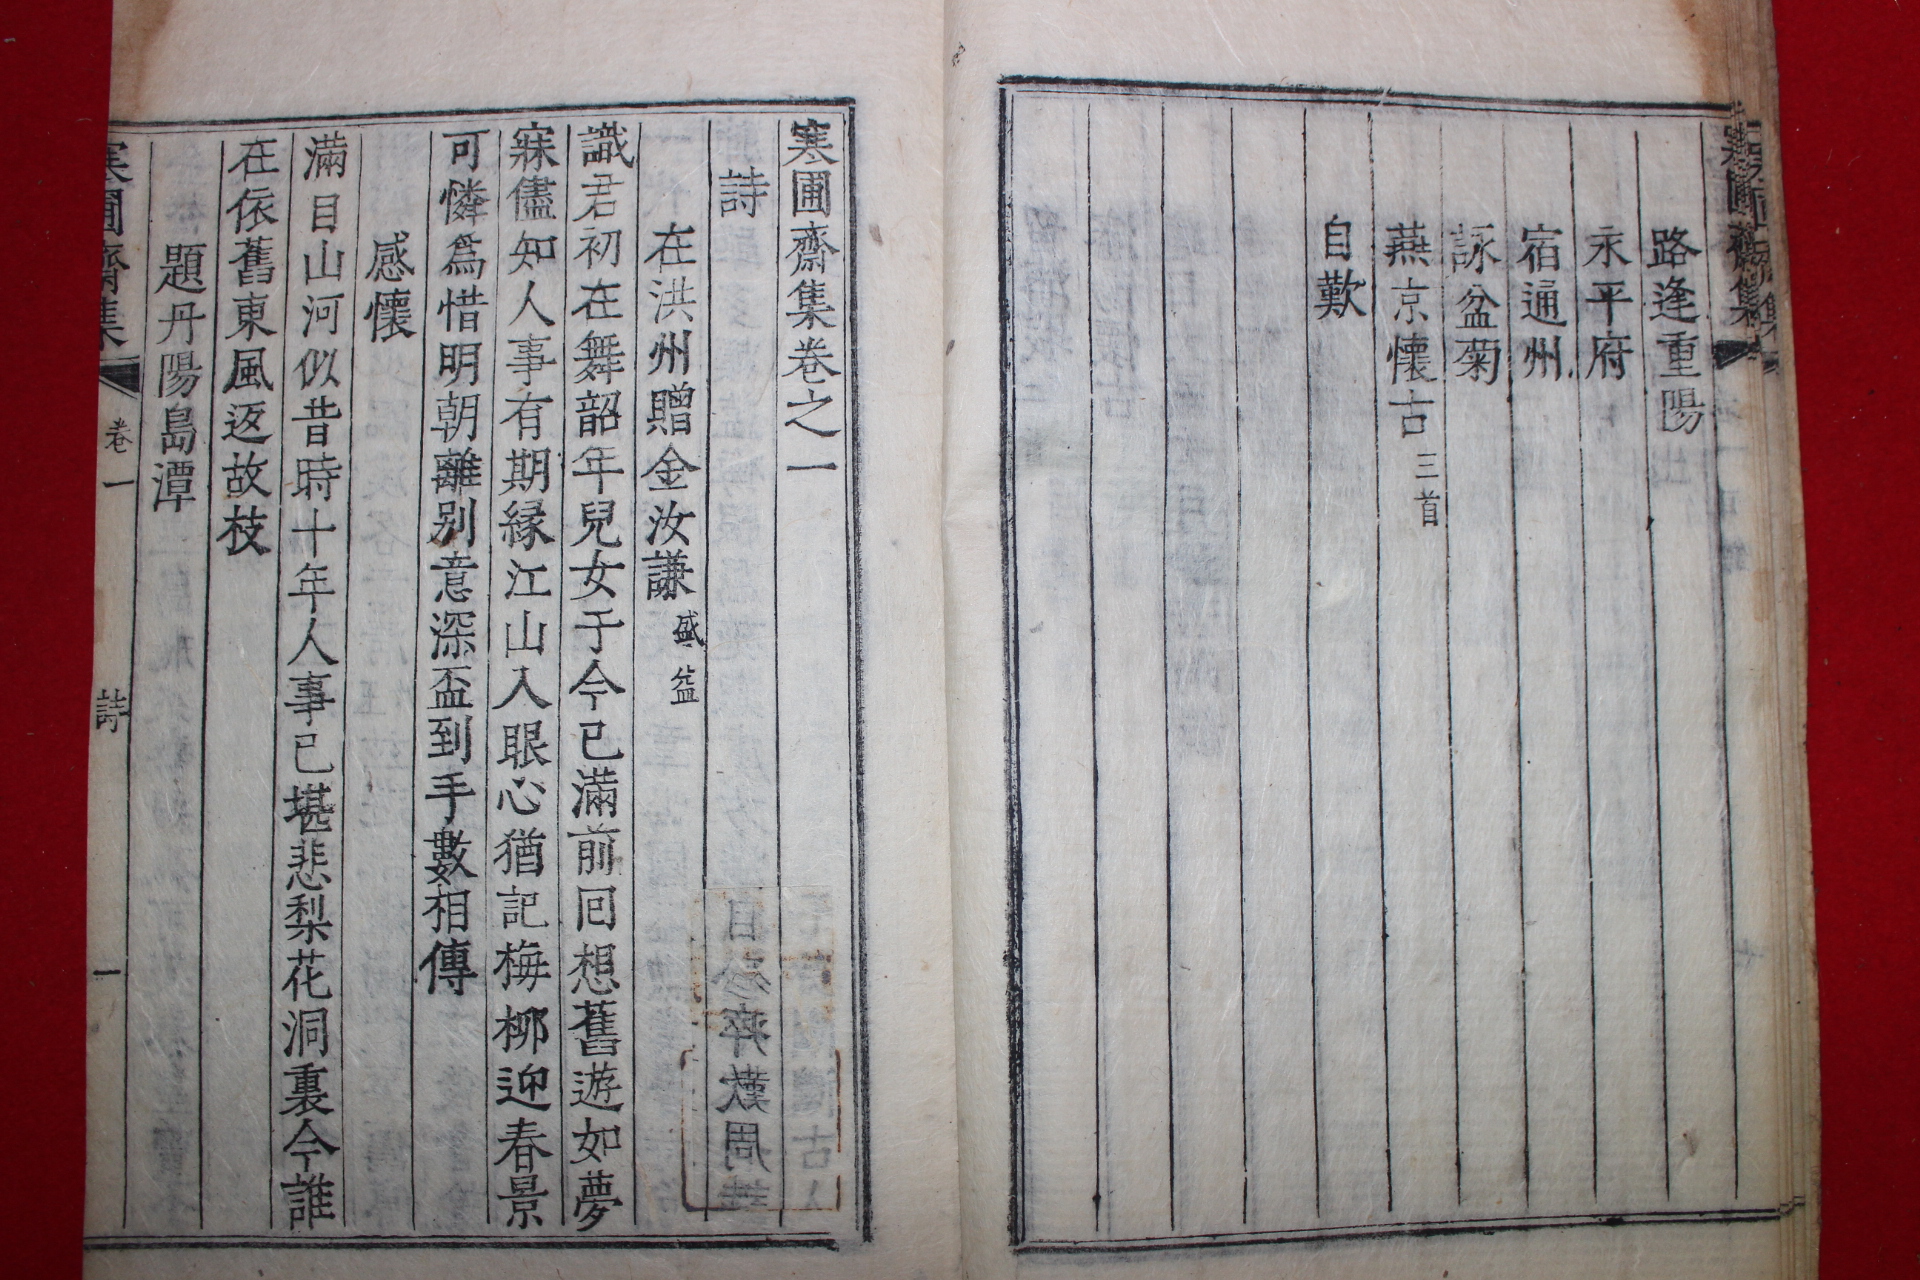 路逢重陽
永平府
宿通州
詠盆菊
燕京懷古 三首
自歎
寒圃齋集卷之一
詩
在洪州贈金汝謙 盛益
識君初在舞韶年兒女于今已滿前回想舊遊如夢
寐儘知人事有期緣江山入眼心猶記梅柳迎春景
可憐爲惜明朝離别意深盃到手數相傳
感懷
滿目山河似昔時十年人事已堪悲梨花洞裏今誰
在依舊東風返故枝
題丹陽島潭
寒圃齋集
卷一
詩
一